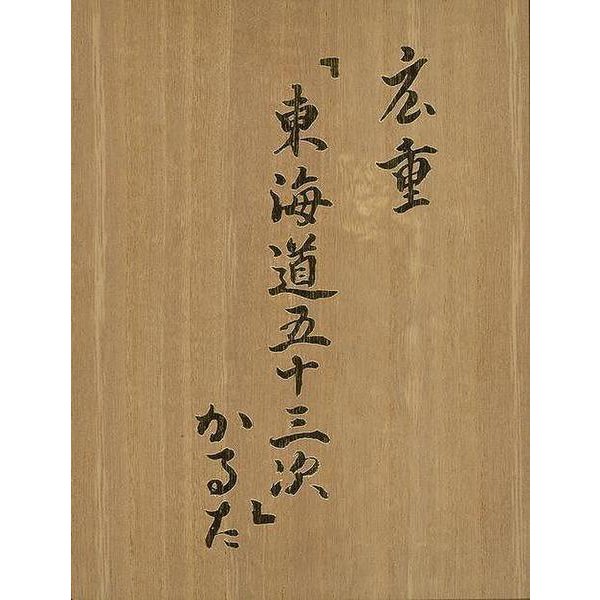 広重
「東海道五十三次」
かるた